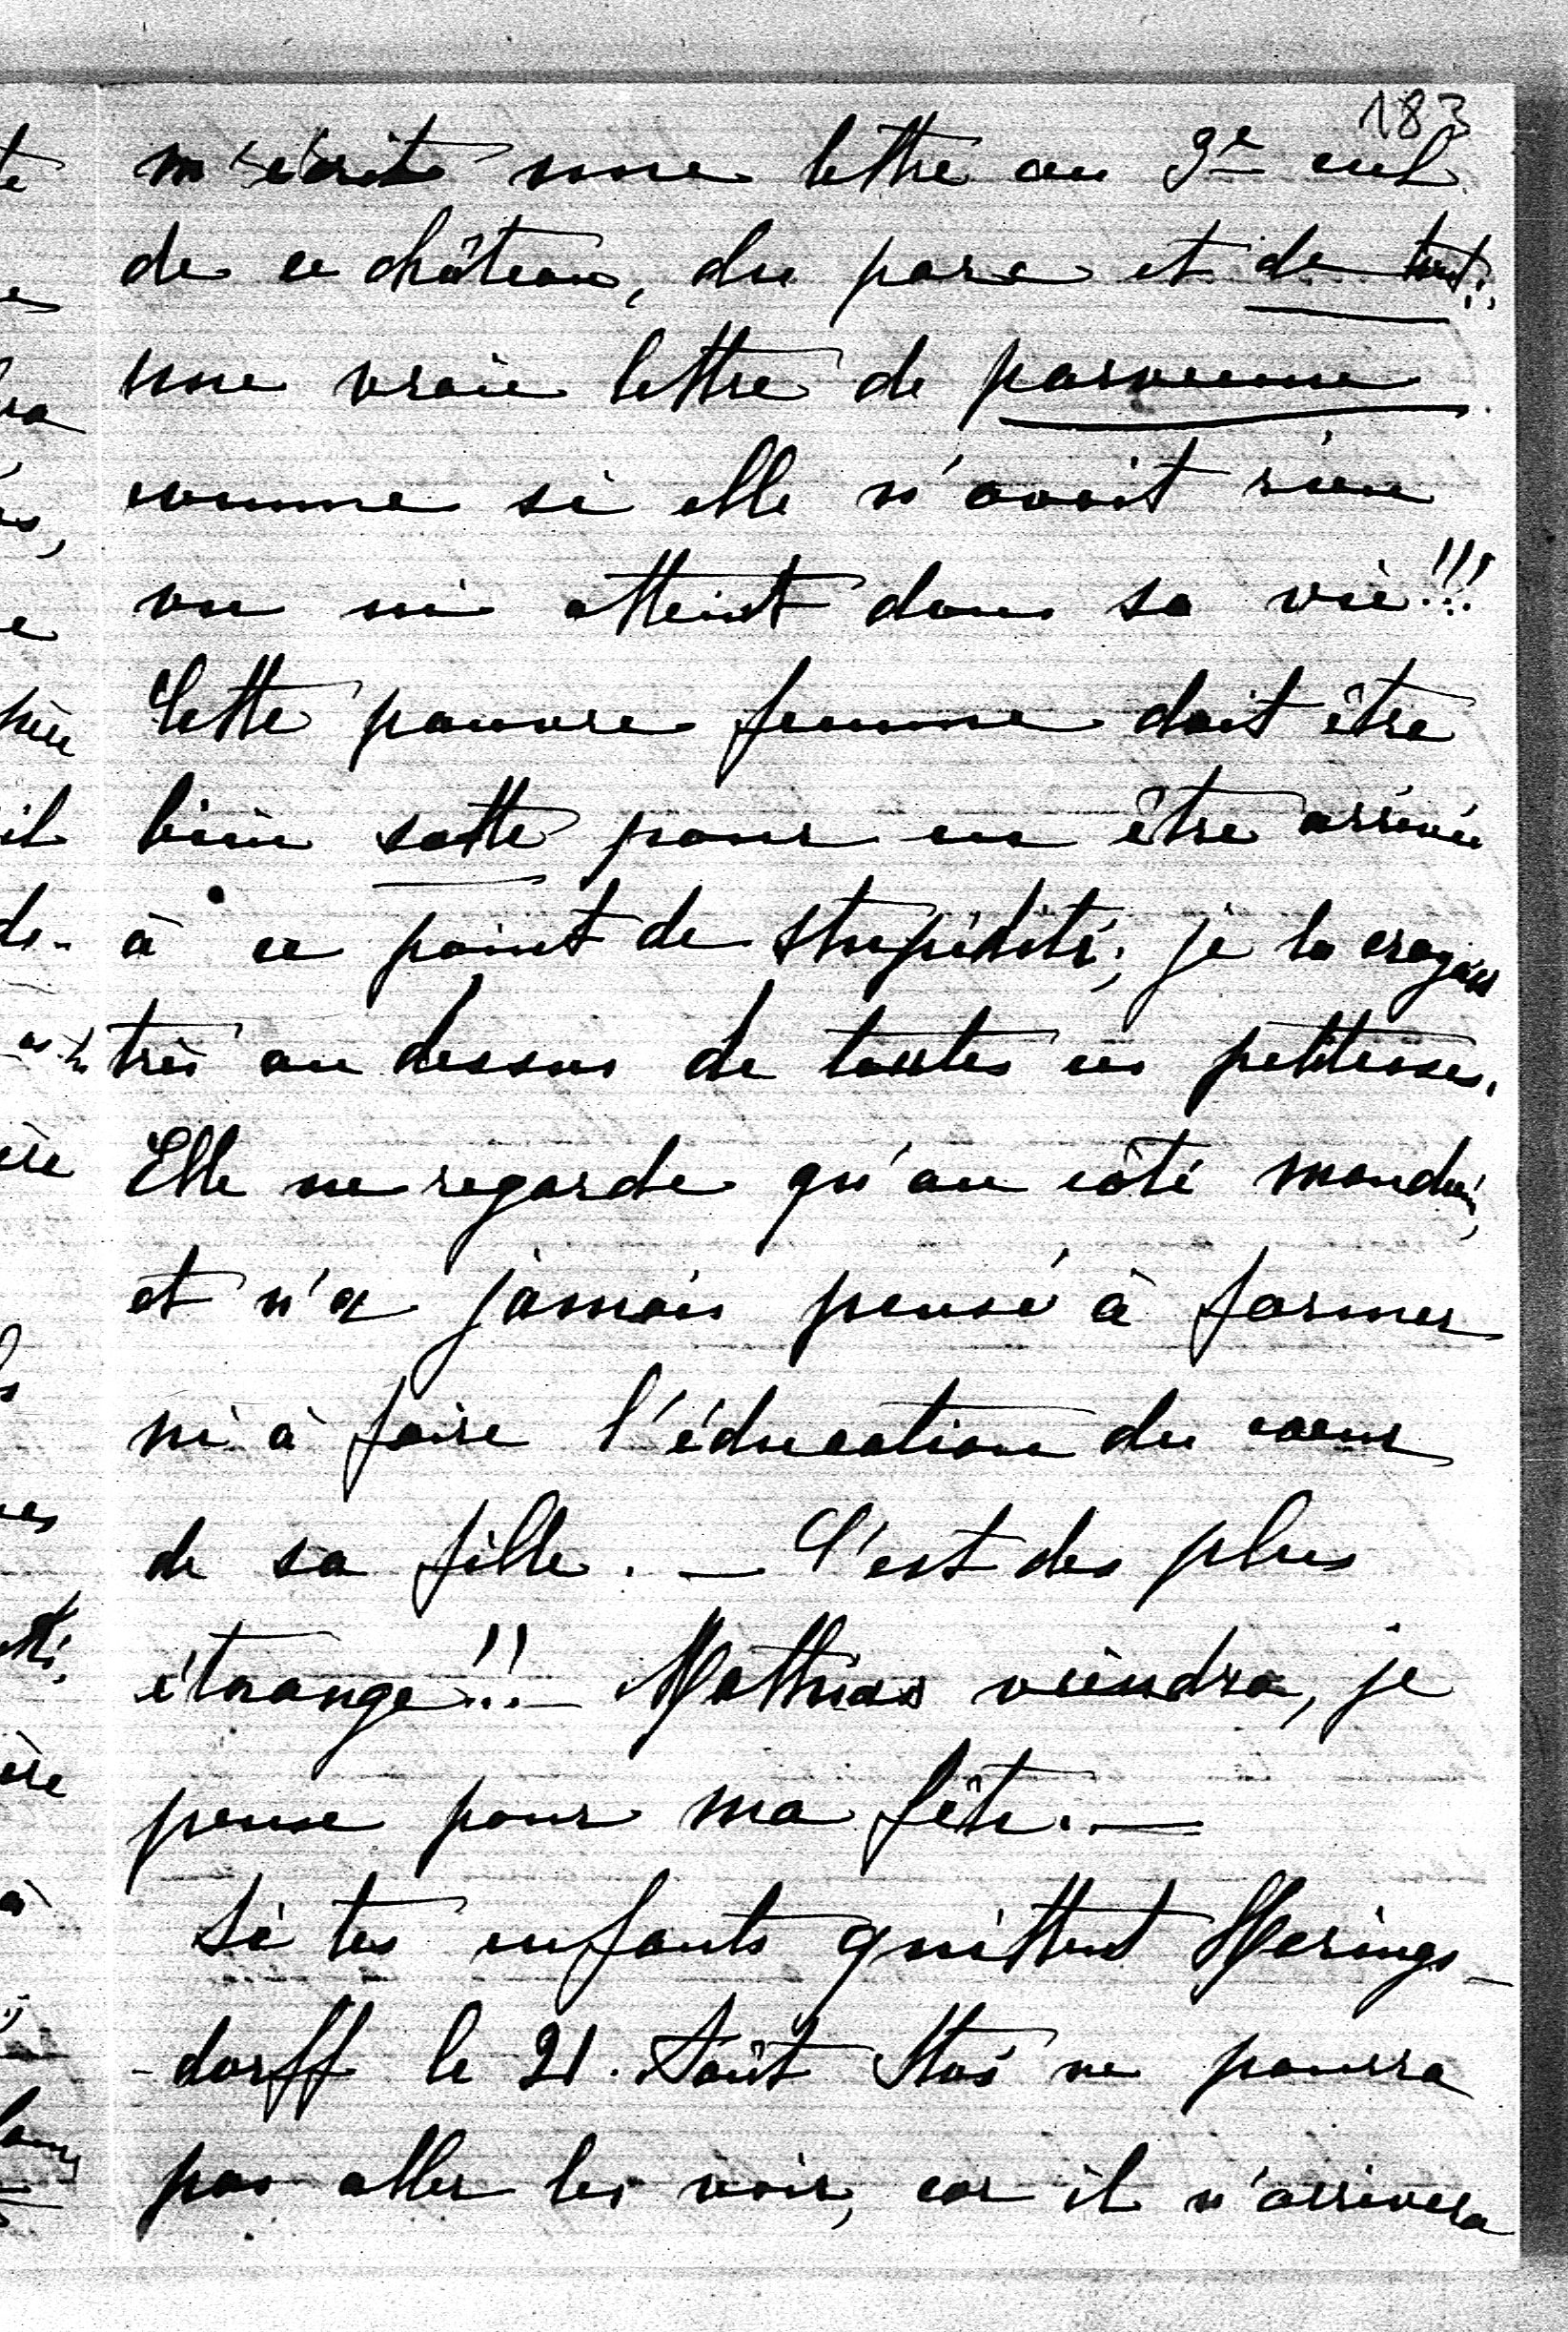 183
m'écrit une lettre au 9e ciel
de ce château, du parc et de tout!!
une vraie lettre de parvenue
comme si elle n'avait rien
vu ni atteint dans sa vie!!!
Cette pauvre femme doit être
bien sotte pour en être arrivée
à ce point de stupidité; je la croyais
très au dessus de toutes ces petitesses.
Elle ne regarde qu'au côté mondain,
et n'a jamais pensé à former
ni à faire l'éducation du coeur
de sa fille. — C'est des plus
étrange!!! — Mathias viendra, je
pense pour ma fête. —
Si tes enfants quittent Herings-
-dorff le 21. Août Stas ne pourra
pas aller les voir, car il n'arrivera